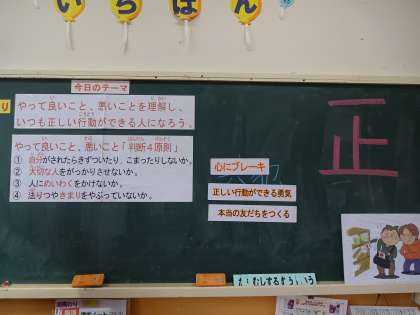 いちばん
今日のテーマ
り
やって良いこと、悪いことを理解し、
いつも正しい行動ができる人になろう。
やって良いこと、悪いこと「判断4原則」
① 自分がされたらきずついたり、こまったりしないか。
② 大切な人をがっかりさせないか。
③ 人にめいわくをかけないか。
④ 法りつやきまりをやぶっていないか。
心にブレーキ
正しい行動ができる勇気
本当の友だちをつくる
正